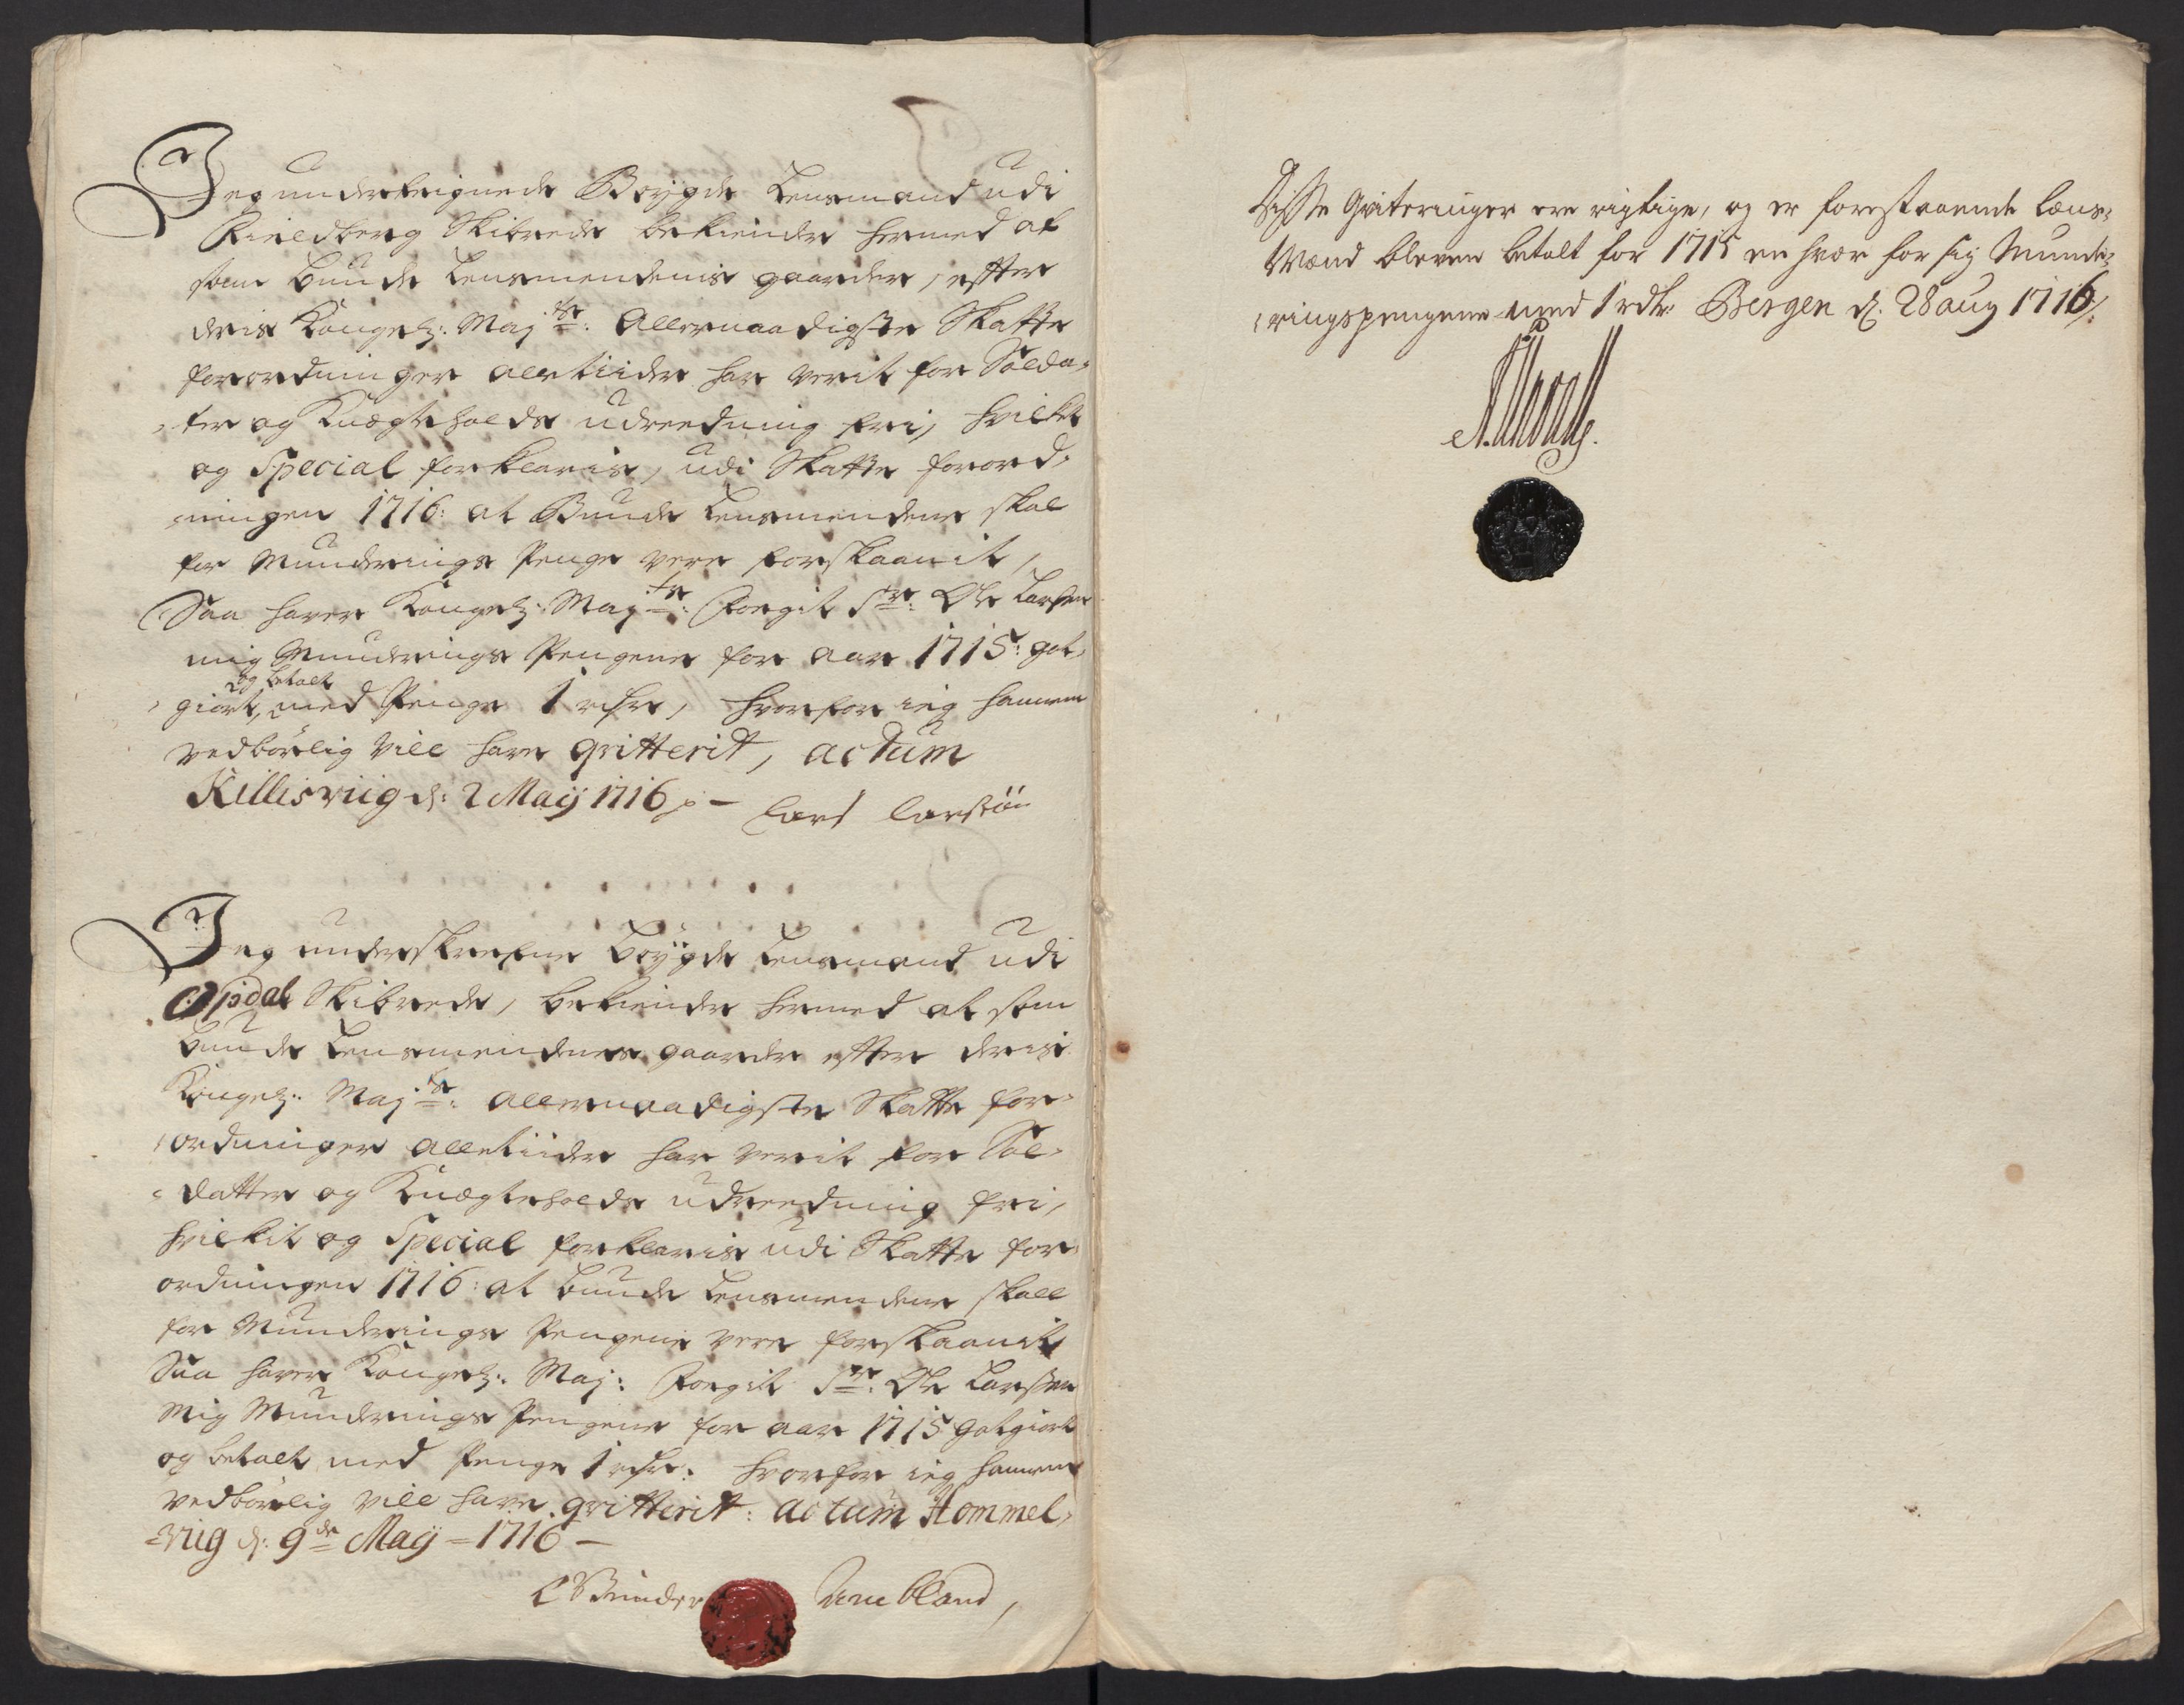 Jeg underteignede Böygde Lensmand udi
Kieldberg Skibrede bekiender hermed at
som Bunde Lensmendenis gaarder, effter
deris Kongel: Maj:ts: Allernaadigste Skatte
forordninger alletiider har verit for Solda-
ter og Knægteholds udreedning fri, hvilket
og Special forklaris, udi Skatte forord-
ningen 1716: at Bunde Lensmendene skal
for Munderings Penge vere forskaanit,
Saa haver Kongel: Maj:ts: Foegit Sr: Ole Larsen
mig Munderings Pengene for aar 1715: got-
giort, og betalt med Penge 1 rdr, hvorfor ieg hannem
vedbörlig vill have qvitterit, actum
Killisviig d: 2 Maij 1716 –
Lars Larsön
Jeg underskrefne böygde Lensmand udi
Opdal Skibrede, bekiender hermed at som
bunde Lensmendenes gaarder effter deris
Kongel: Maj:ts: allernaadigste Skatte for-
ordninger alletiider har verit for Sol-
datter og Knægteholds udreedning fri,
hvilkit og Special forklaris udi Skatte for-
ordningen 1716: at bunde Lensmendene skall
for Munderings Pengene vere forskaanit
Saa haver Kongel: Maj: Foegit Sr: Ole Larsen
Mig Munderings Pengene for aar 1715 gotgiort
og betalt med Penge 1 rdr: hvorfor ieg hannem
vedbörlig vill have qvitterit: actum Hommel-
viig d: 9de Maij 1716 –
Disse Qviteringer ere rigtige, og er forestaaende Lens-
Mænd bleven betalt for 1715 en hver for sig Munde-
ringspengene med 1 rdr Bergen d. 28 aug 1716